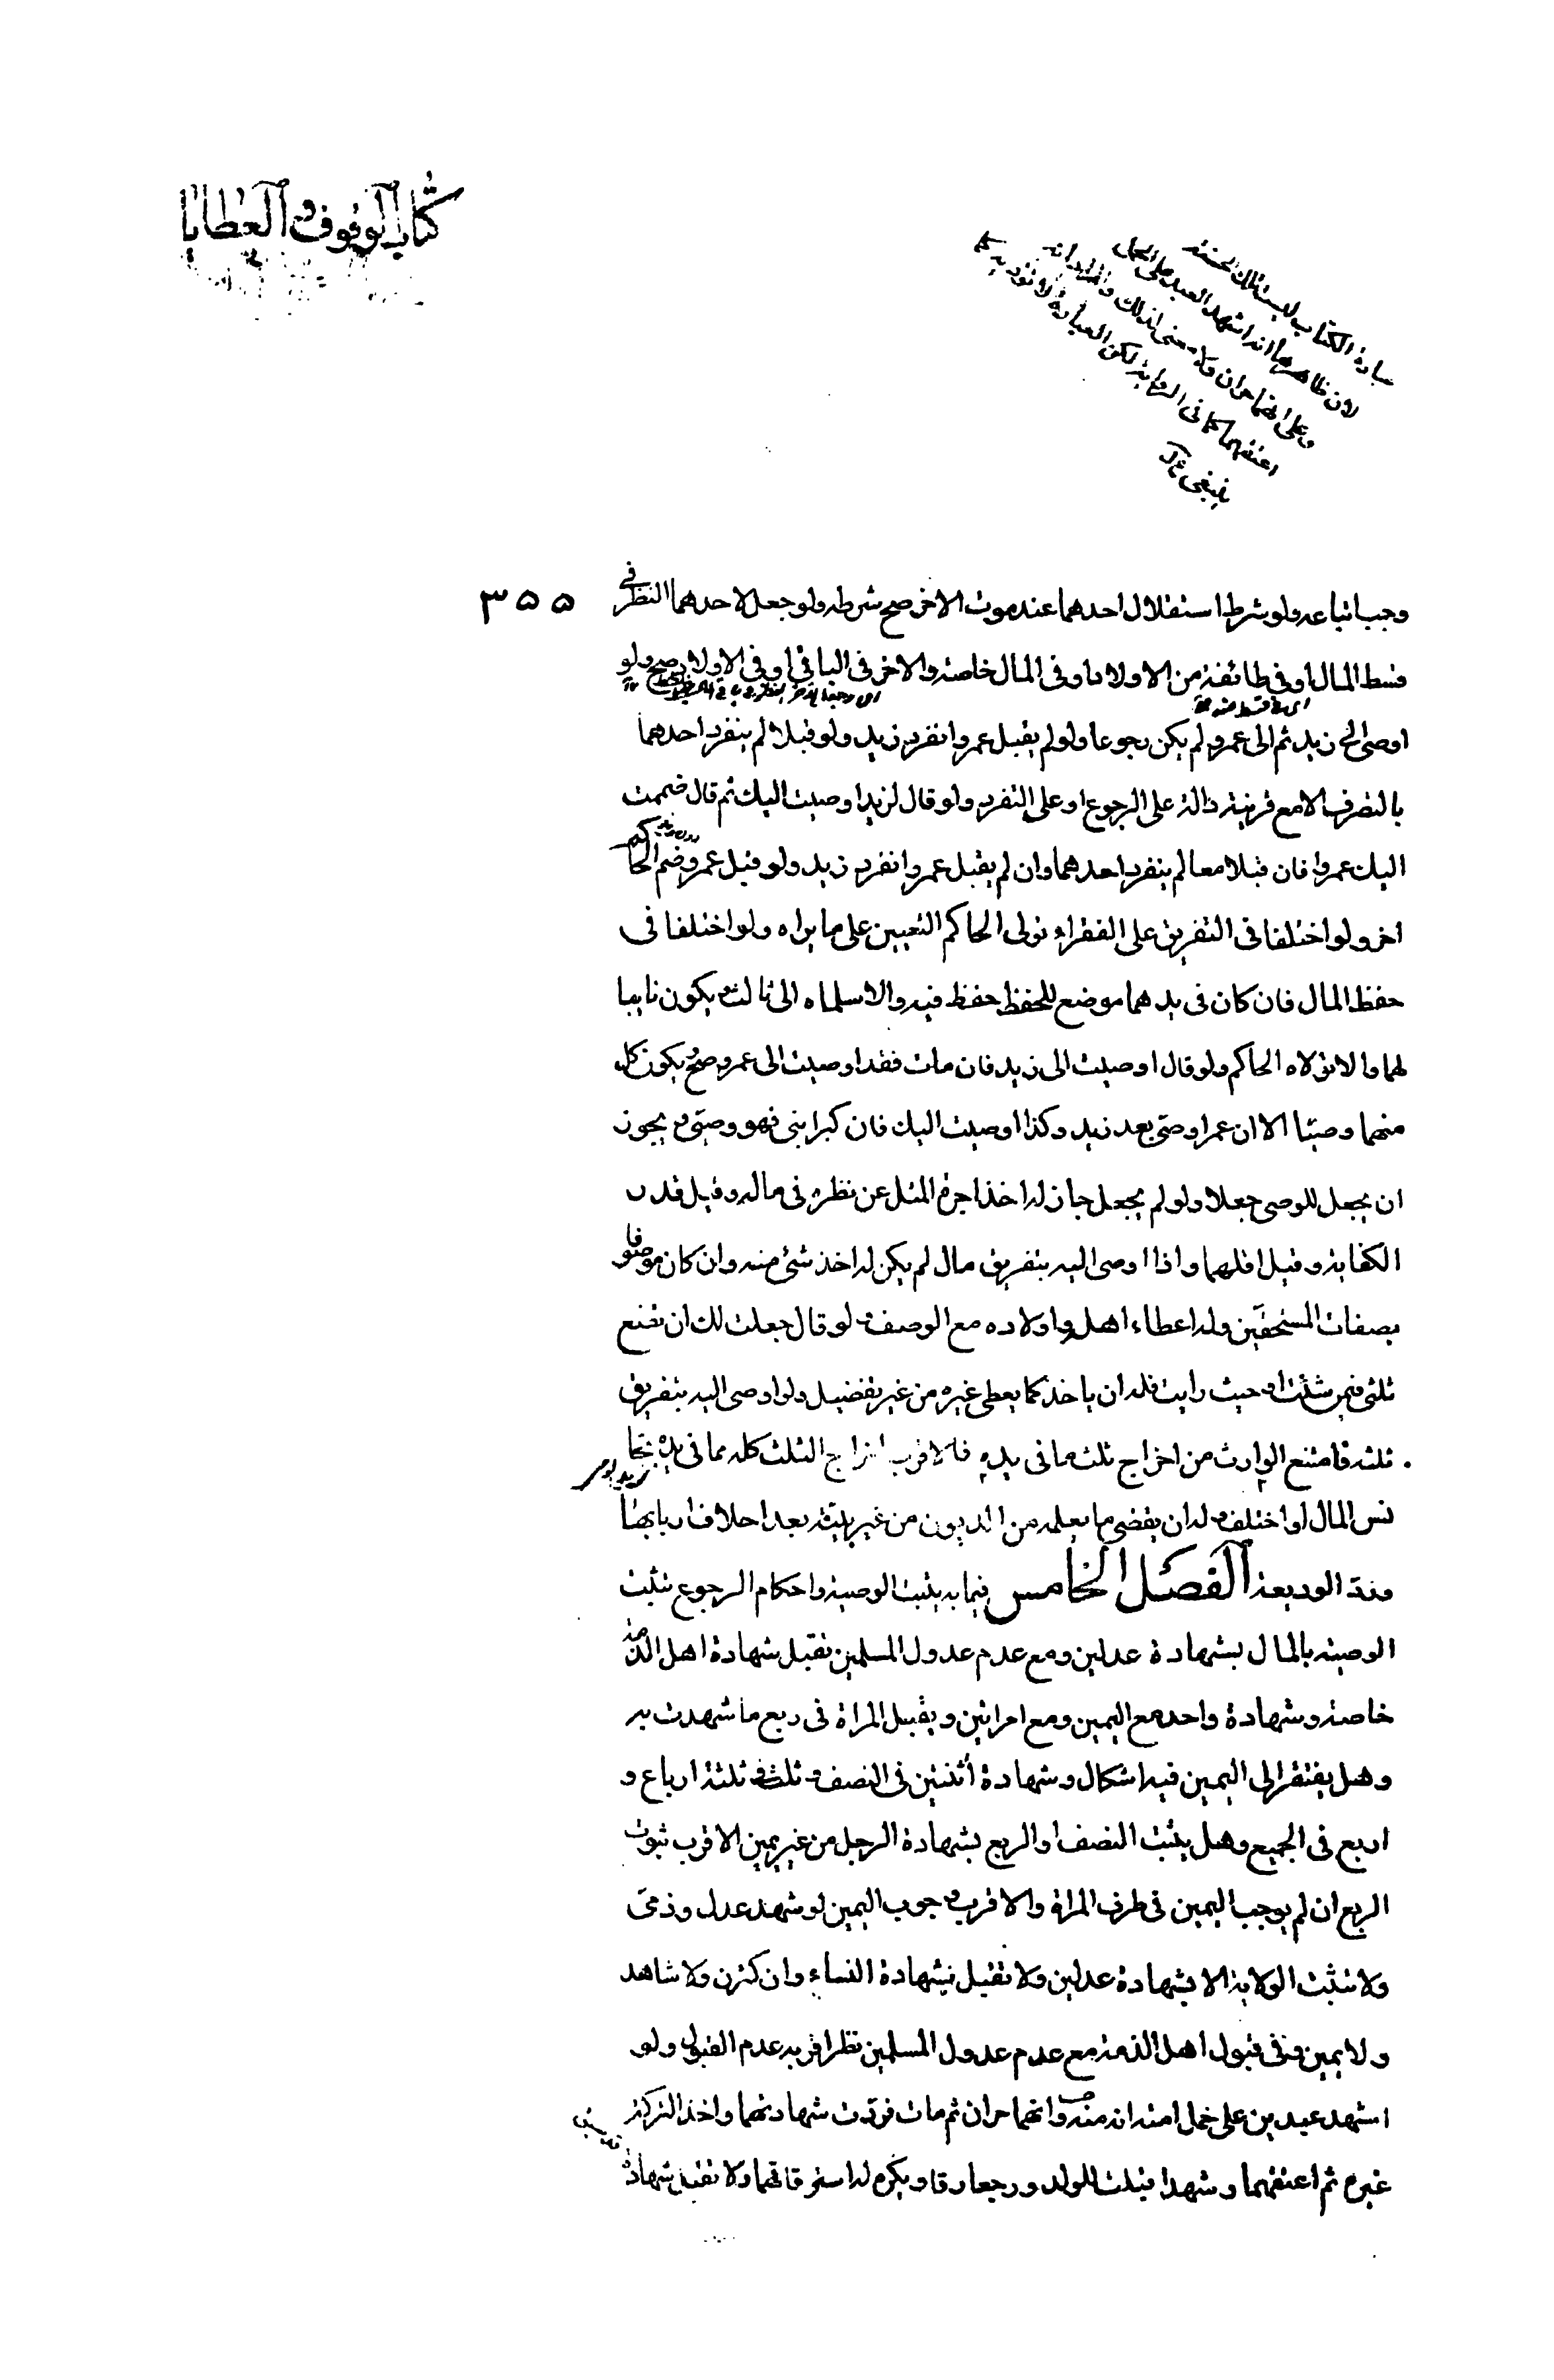 كتاب الوقوف و العطايا
عبارة الكتاب ليست بتلك الحسنة
لان ظاهرها انه اشهد العبدين على الحمل
وعلى انهما حران فلا معنى لذلك والمراد انه
اعتقهما كما فى الرواية لكن العبارة لا تؤديه كما
ينبغى
٣٥٥
وجب اتباعه ولو شرط استقلال احدهما عند موت الاخر صح شرطه ولو جعل لاحدهما النظر فى
قسط المال او فى طائفة من الاولاد او فى المال خاصة والاخر فى الباقى او فى الاولاد صح ولو
اوصى الى زيد ثم الى عمرو لم يكن رجوعا ولو لم يقبل عمرو انفرد زيد ولو قبلا لم ينفرد احدهما
بالتصرف الا مع قرينة دالة على الرجوع او على التفرد ولو قال لزيد اوصيت اليك ثم قال ضممت
اليك عمروا فان قبلا معا لم ينفرد احدهما وان لم يقبل عمرو انفرد زيد ولو قبل عمرو دون زيد ضم الحاكم
اخر ولو اختلفا فى التفريق على الفقراء تولى الحاكم التعيين على ما يراه ولو اختلفا فى
حفظ المال فان كان فى يدهما موضع للحفظ حفظ فيه والا سلماه الى ثالث يكون نايبا
لهما والا تولاه الحاكم ولو قال اوصيت الى زيد فان مات فقد اوصيت الى عمرو صح ويكون كل
منهما وصيا الا ان عمرا وصى بعد زيد وكذا اوصيت اليك فان كبر ابنى فهو وصيى ويجوز
ان يجعل للوصى جعلا ولو لم يجعل جاز له اخذ اجرة المثل عن نظره فى ماله وقيل قدر
الكفاية وقيل اقلهما واذا اوصى اليه بتفريق مال لم يكن له اخذ شئ منه وان كان موصوفا
بصفات المستحقين وله اعطاء اهله واولاده مع الوصف ولو قال جعلت لك ان تضع
ثلثى فيمن شئت او حيث رايت فله ان ياخذ كما يعطى غيره من غير تفضيل ولو اوصى اليه بتفريق
ثلثه فامتنع الوارث من اخراج ثلث ما فى يده فالاقرب اخراج الثلث كله مما فى يده اتحد
جنس المال او اختلف وله ان يقضى ما يعلمه من الديون من غير بينة بعد احلاف اربابها
ورد الوديعة الفصل الخامس فيما به يثبت الوصية واحكام الرجوع تثبت
الوصية بالمال بشهادة عدلين ومع عدم عدول المسلمين تقبل شهادة اهل الذمة
خاصة وشهادة واحد مع اليمين ومع امراتين ويقبل المراة فى ربع ما شهدت به
وهل يفتقر الى اليمين فيه اشكال وشهادة اثنتين فى النصف وثلث فى ثلثة ارباع و
اربع فى الجميع وهل يثبت النصف او الربع بشهادة الرجل من غير يمين الاقرب ثبوت
الربع ان لم يوجب اليمين فى طرف المراة والاقرب وجوب اليمين لو شهد عدل وذمى
ولا تثبت الولاية الا بشهادة عدلين ولا تقبل شهادة النساء وان كثرن ولا شاهد
ولا يمين وفى قبول اهل الذمة مع عدم عدول المسلمين نظر اقربه عدم القبول ولو
اشهد عبدين على حمل امته انه منه وانهما حران ثم مات فردت شهادتهما واخذ التركة
غيره ثم اعتقهما وشهدا قبلت للولد ورجعا رقا ويكره له استرقاقهما ولا تقبل شهادة